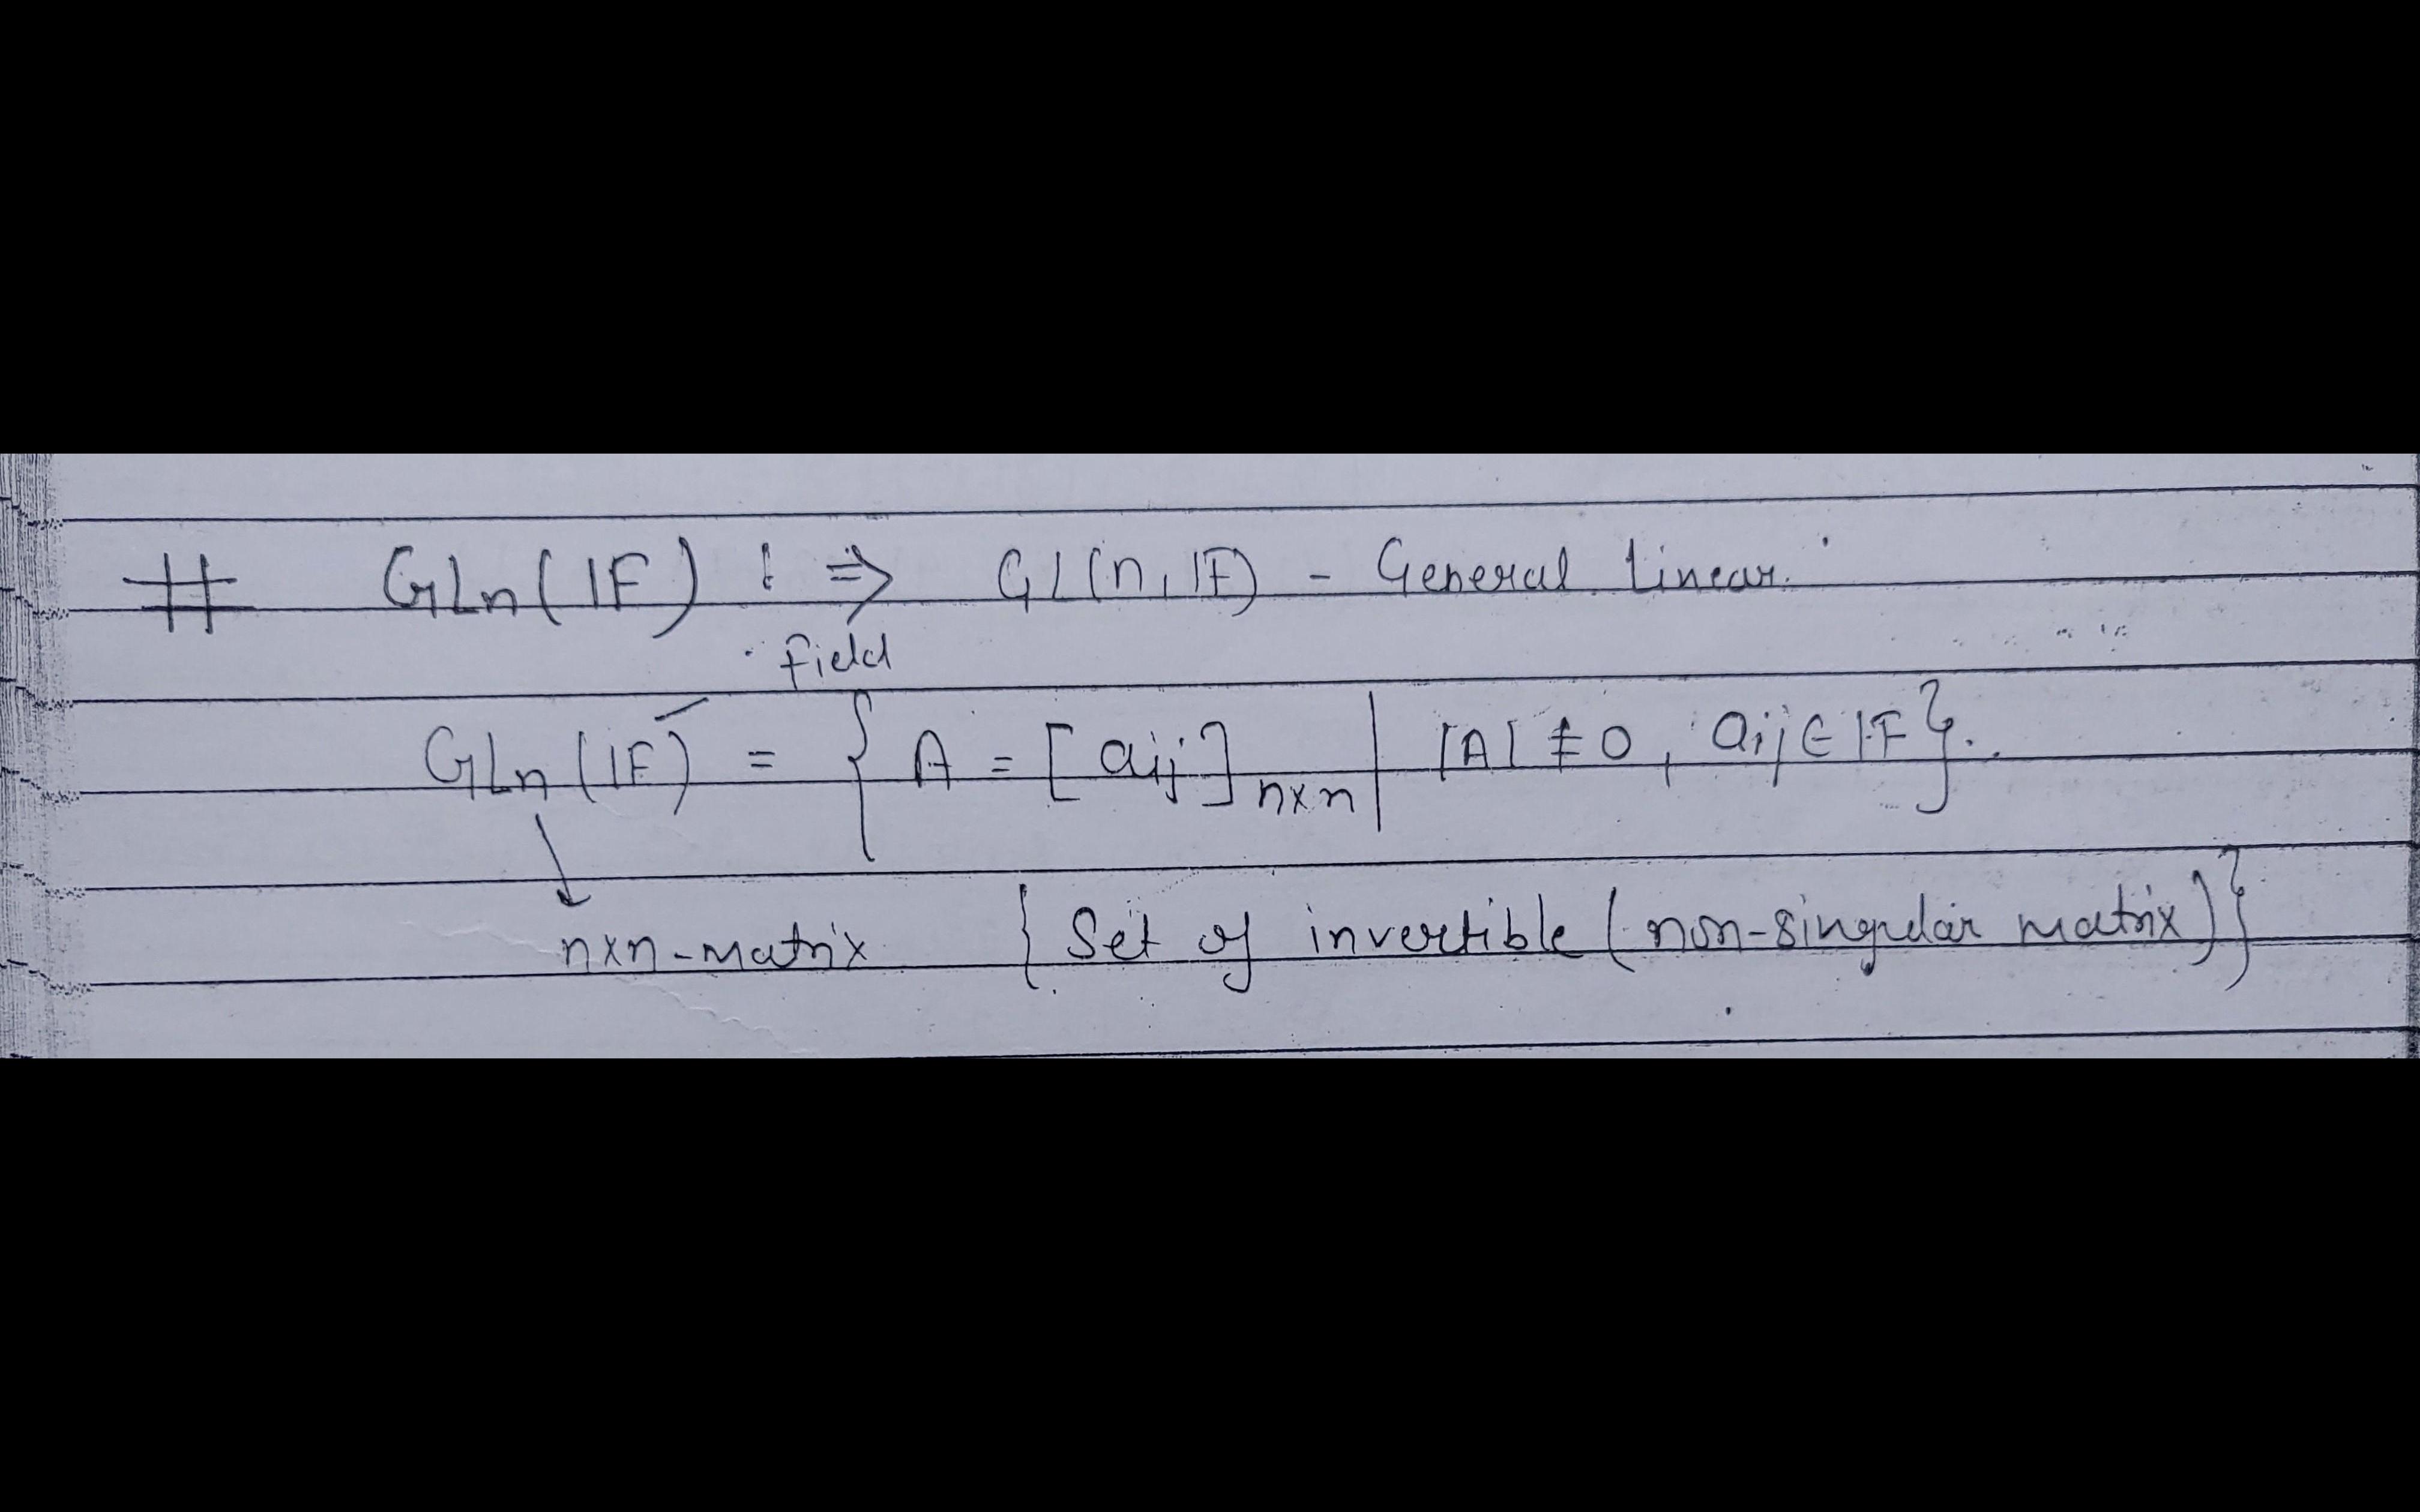 # GLn(IF) : ⇒ GL(n, IF) - General Linear.
field
GLn(IF) = { A = [aij]n×n | |A| ≠ 0, aij ∈ IF}.
n×n-matrix { Set of invertible (non-singular matrix)}